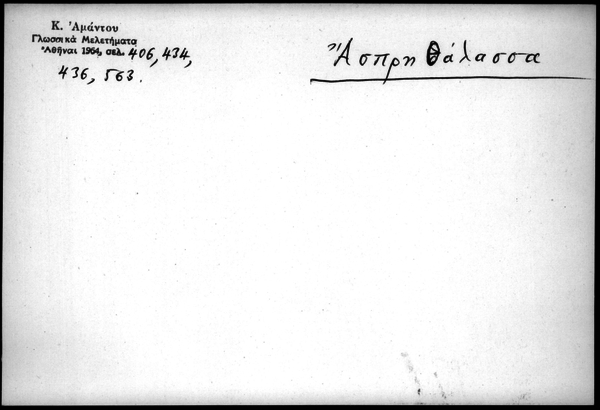 Κ. Ἀμάντου
Γλωσσικά Μελετήματα
Ἀθῆναι 1964, σελ. 406, 434,
436, 563.
Ἄσπρη Θάλασσα